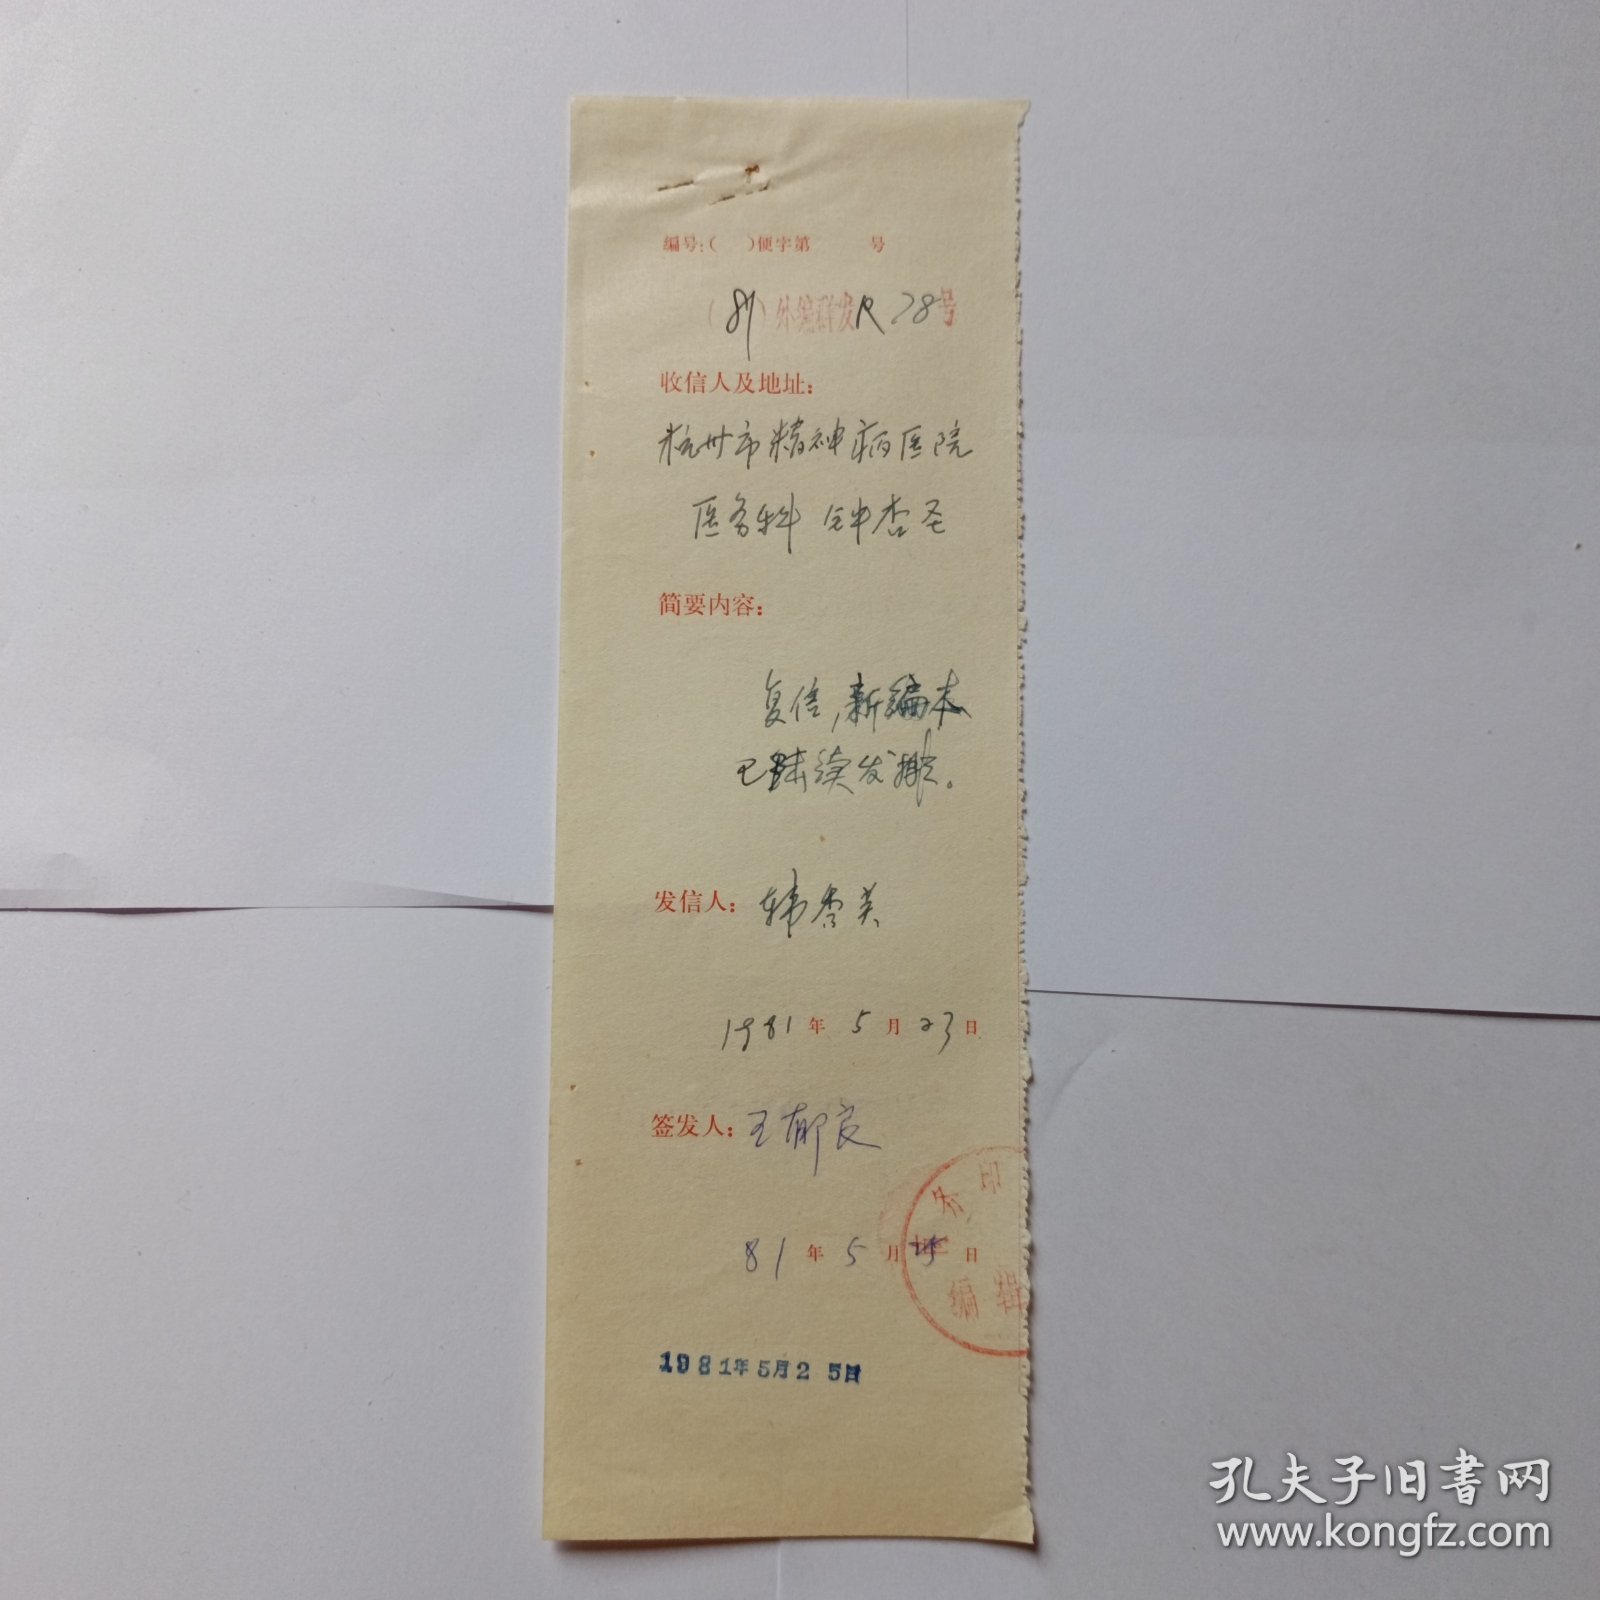 编号:（ ）便字第 号
（81）外编群发R78号
收信人及地址：
杭州市精神病医院
医务科 钟杏圣
简要内容：
复信，新编本
已陆续发排。
发信人：韩秀英
1981年5月23日
签发人：王郁良
务印
编辑
81年5月25日
1981年5月25日
孔夫子旧书网
www.kongfz.com